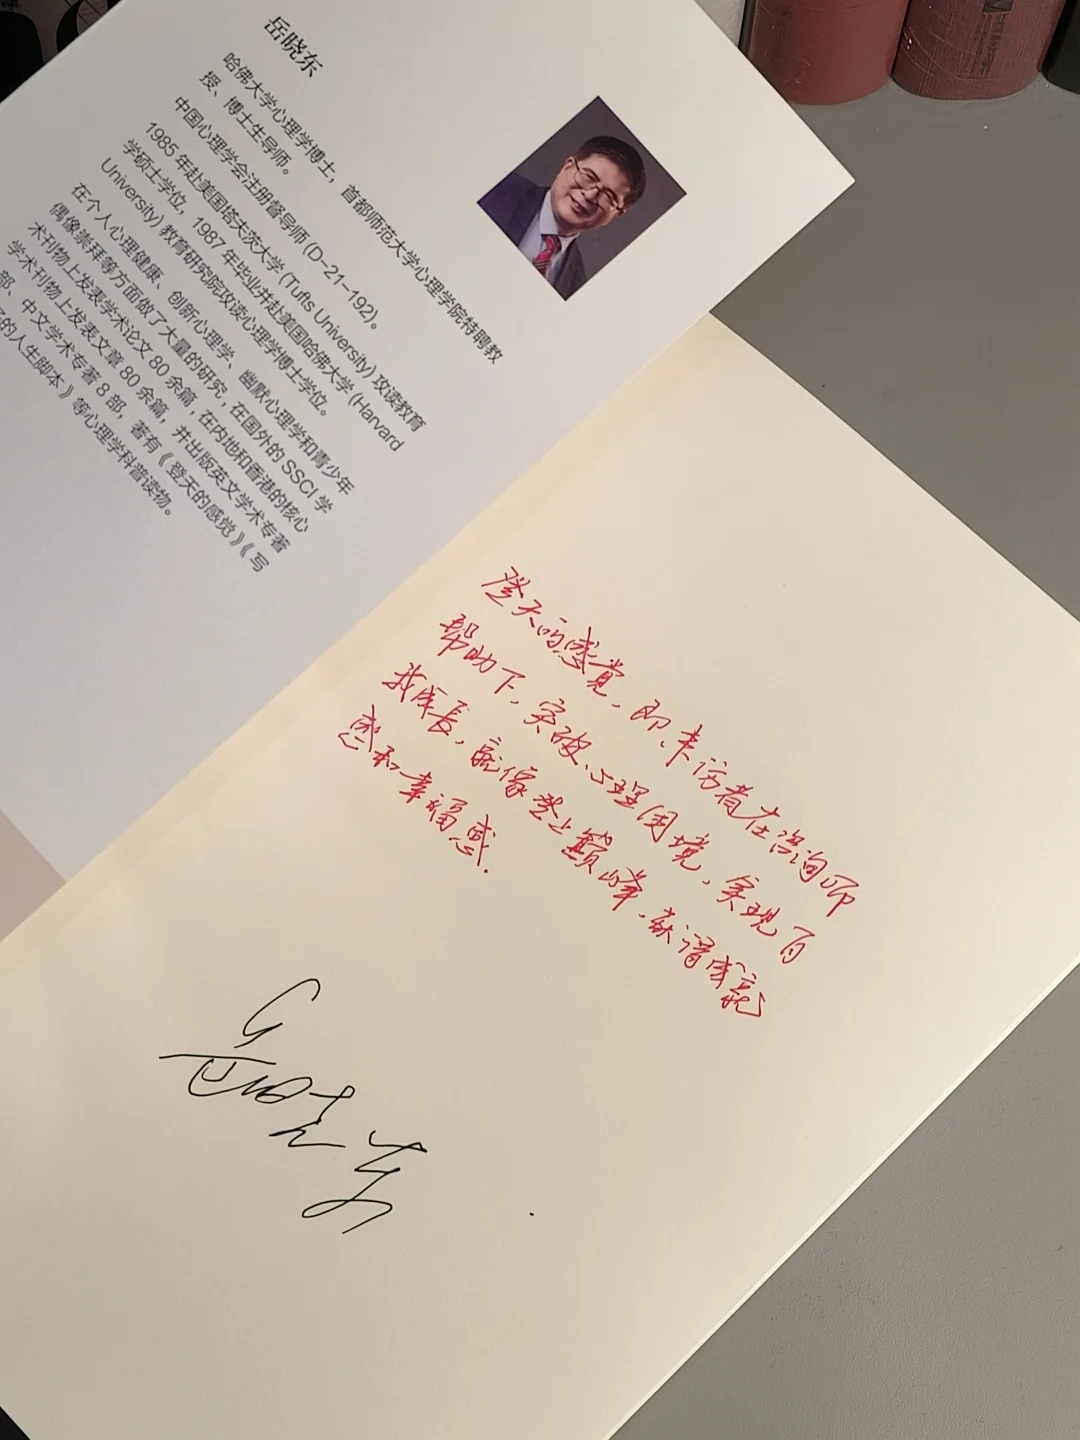 岳晓东
哈佛大学心理学博士，首都师范大学心理学院特聘教
授、博士生导师。
中国心理学会注册督导师 (D-21-192)。
1985 年赴美国塔夫茨大学 (Tufts University) 攻读教育
学硕士学位，1987 年毕业并赴美国哈佛大学 (Harvard
University) 教育研究院攻读心理学博士学位。
在个人心理健康、创新心理学、幽默心理学和青少年
偶像崇拜等方面做了大量的研究，在国外的 SSCI 学
术刊物上发表学术论文 80 余篇，在内地和香港的核心
学术刊物上发表文章 80 余篇，并出版英文学术专著
部、中文学术专著 8 部，著有《登天的感觉》《写
的人生脚本》等心理学科普读物。
登天的感觉，即来访者在咨询师
帮助下，突破心理困境，实现自
我成长，就像登上巅峰，获得成就
感和幸福感.
岳晓东